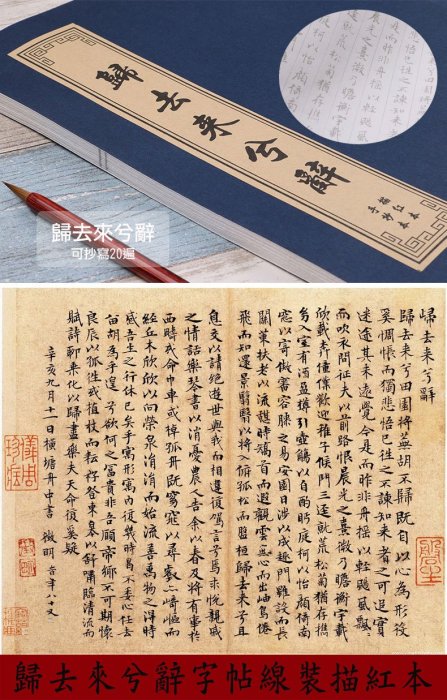 歸去來兮辭
描紅本
手抄本
歸去來兮辭
可抄寫20遍
歸去來兮辭
歸去來兮田園將蕪胡不歸既自以心為形役
奚惆悵而獨悲悟已往之不諫知來者之可追實
迷途其未遠覺今是而昨非舟搖搖以輕颺風飄飄
而吹衣問征夫以前路恨晨光之熹微乃瞻衡宇載
欣載奔僮僕歡迎稚子候門三逕就荒松菊猶存携
幼入室有酒盈罇引壺觴以自酌眄庭柯以怡顏倚南
窓以寄傲審容膝之易安園日涉以成趣門雖設而長
關策扶老以流憩時矯首而遐觀雲無心而出岫鳥倦
飛而知還景翳翳以將入撫孤松而盤桓歸去來兮
息交以請絕遊世與我而相遺復駕言兮焉求悅親戚
之情話樂琴書以消憂農人告余以春及將有事於
西疇或命巾車或棹孤舟既窈窕以尋壑亦崎嶇而
經丘木欣欣以向榮泉涓涓而始流善萬物之得時
感吾生之行休已矣乎寓形寓內復幾時曷不委心任去
留胡為乎遑遑兮欲何之富貴非吾願帝鄉不可期懷
良辰以孤往或植杖而耘耔登東皋以舒嘯臨清流而
賦詩聊乘化以歸盡樂夫天命復奚疑
辛亥九月十一日橫塘舟中書 徵明 時年八十又二
歸去來兮辭字帖線裝描紅本